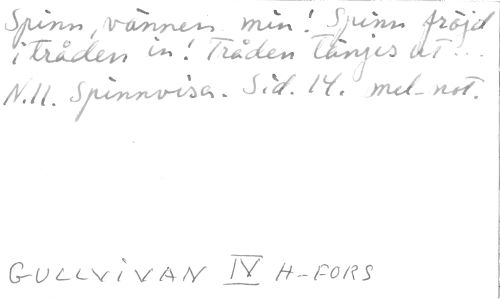 Spinn, vännen min! Spinn fröjd
i tråden in! Tråden tänjes ut...
N.11. Spinnvisa. Sid. 14. mel-not.
GULLVIVAN IV H-FORS